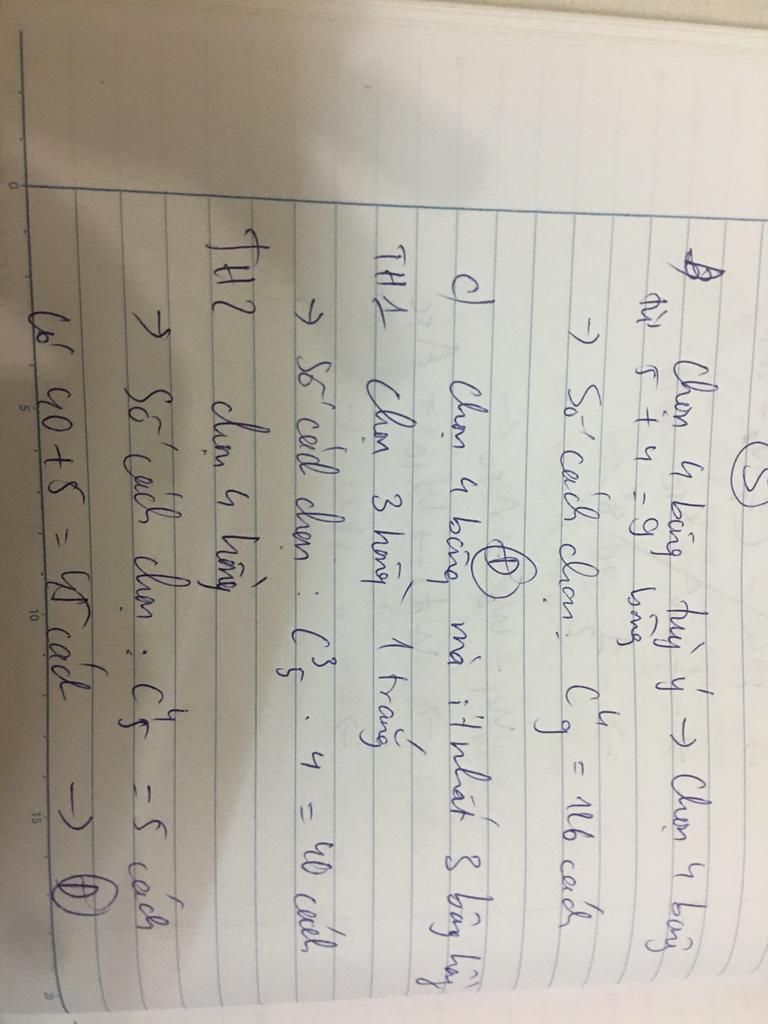 (S)
b) Chọn 4 bông tuỳ ý → Chọn 4 bông
từ 5 + 4 = 9 bông
→ Số cách chọn: C⁴₉ = 126 cách
(Đ)
c) Chọn 4 bông mà ít nhất 3 bông hồng
TH1 Chọn 3 hồng 1 trắng
→ Số cách chọn: C³₅ . 4 = 40 cách
TH2 chọn 4 hồng
→ Số cách chọn: C⁴₅ = 5 cách
Có 40 + 5 = 45 cách → (Đ)
0 5 10 15 20